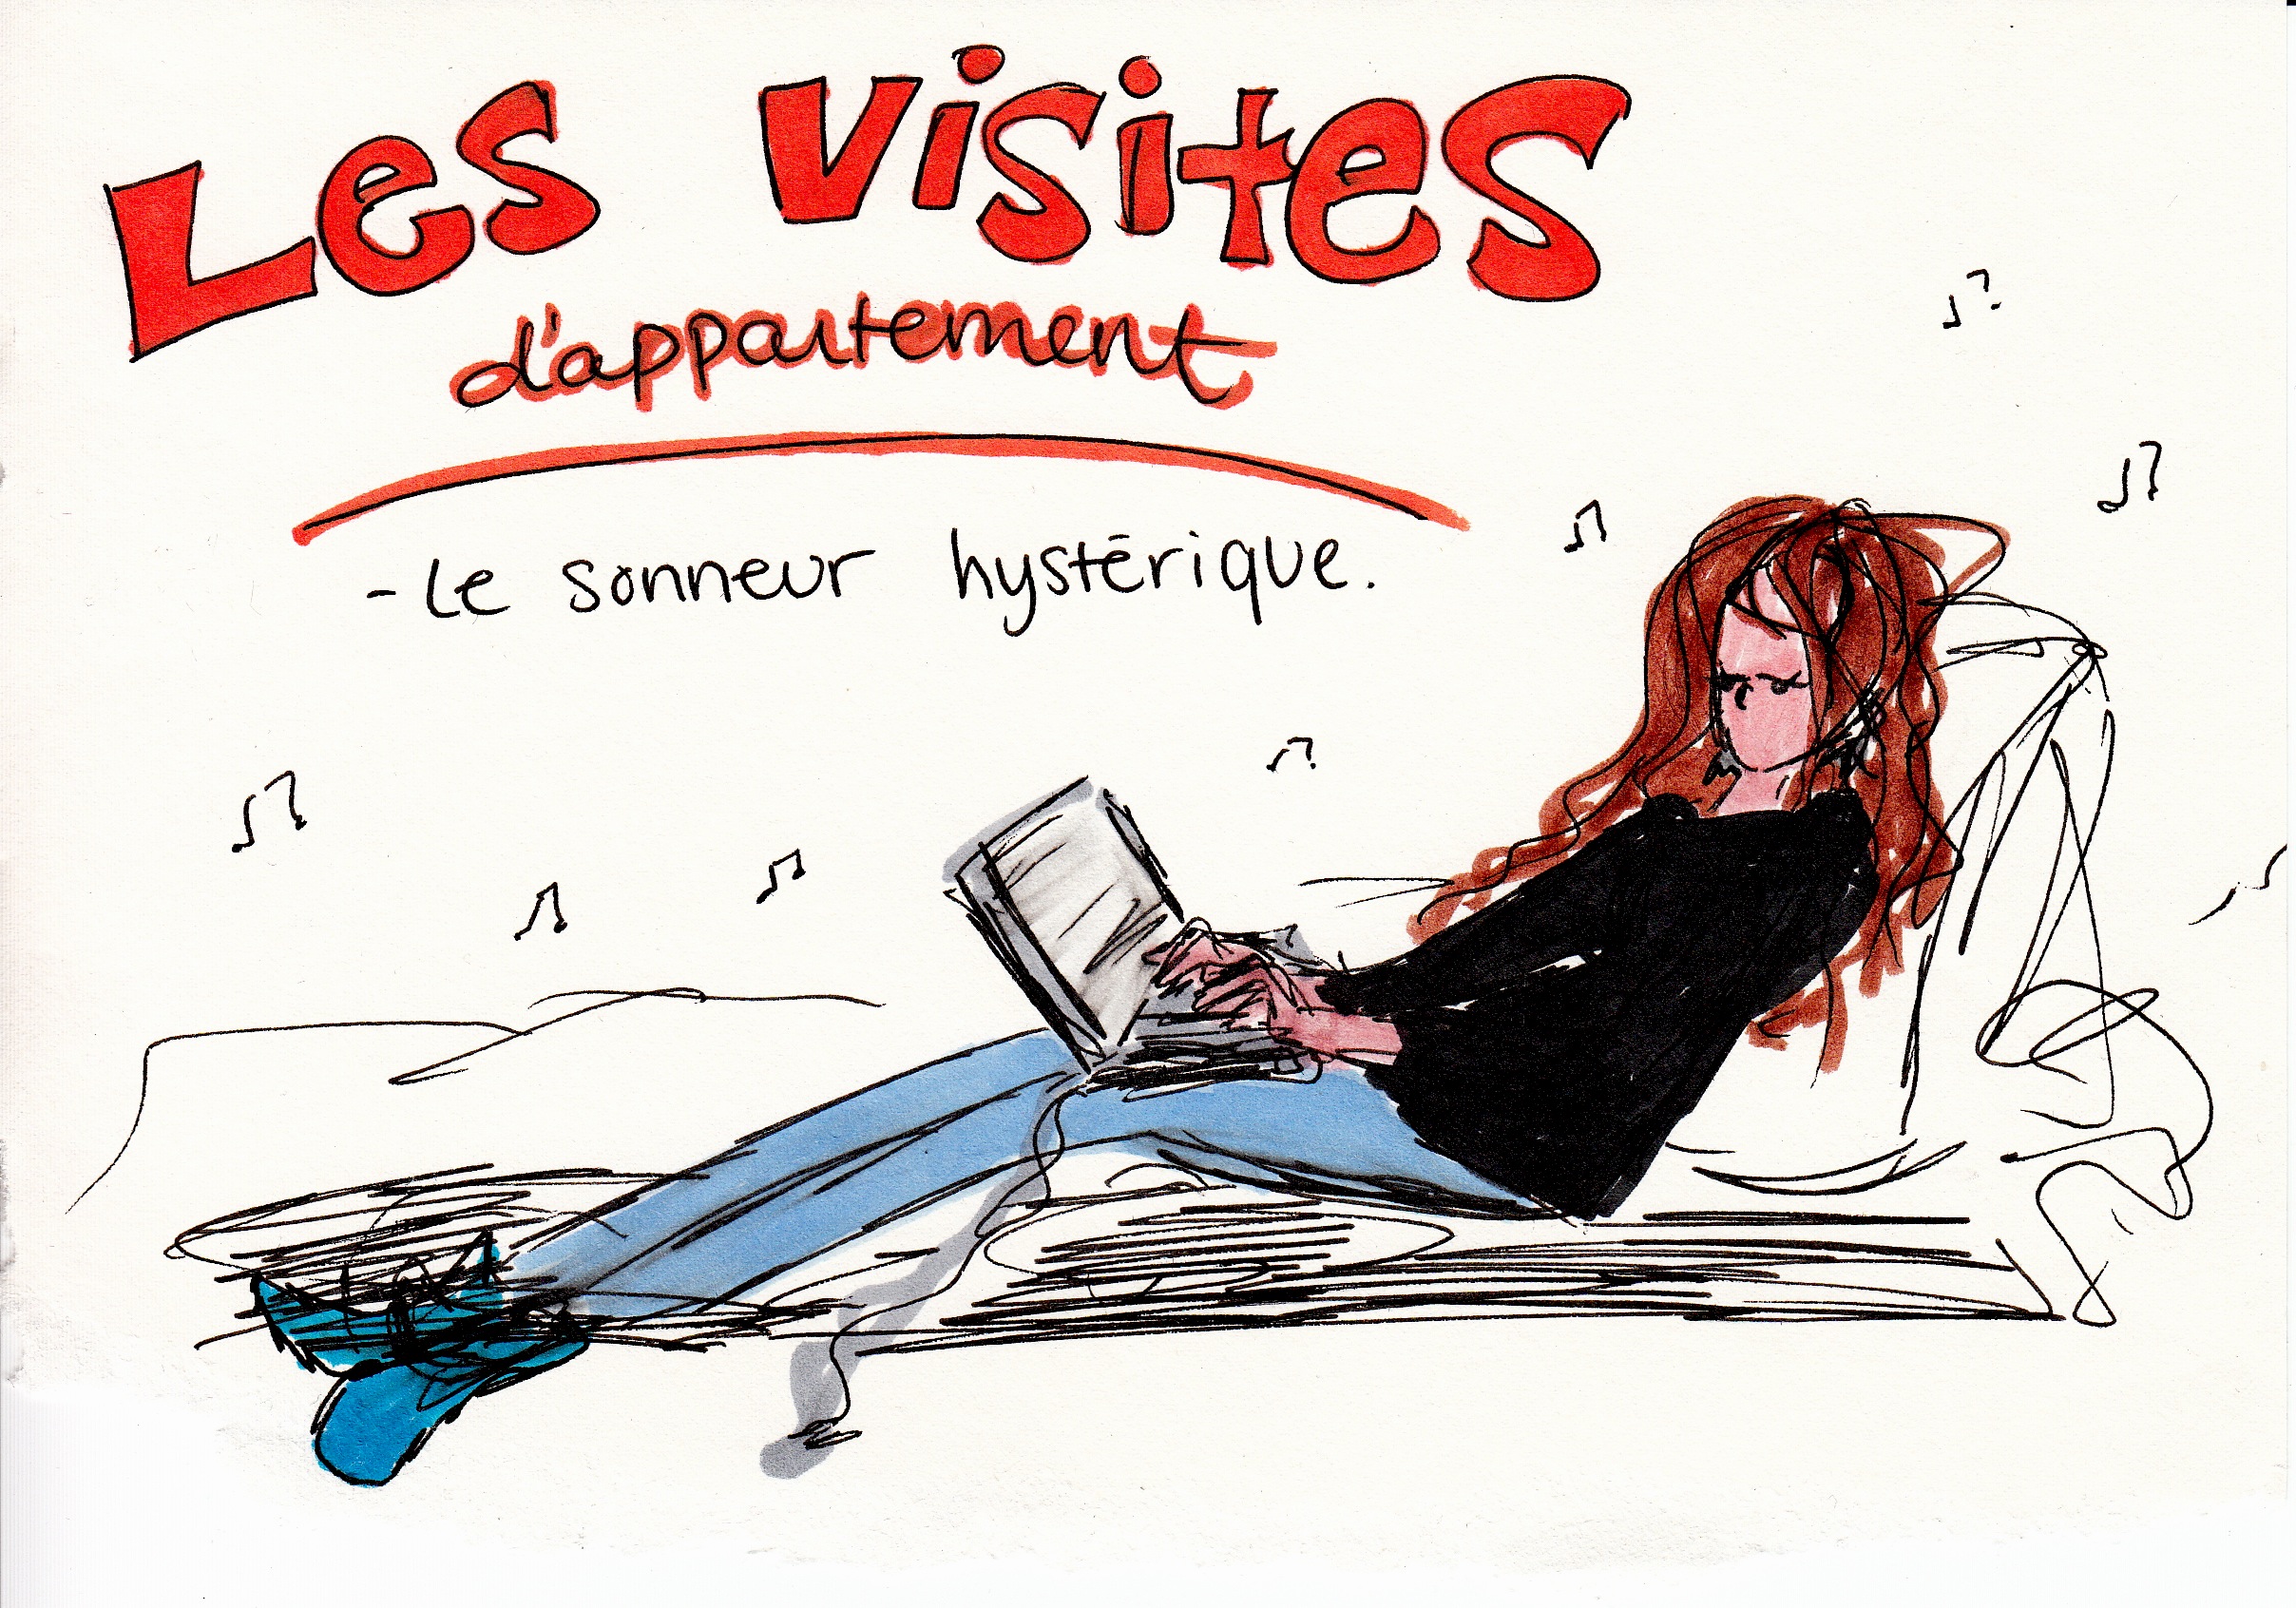 Les visites
d'appartement
- Le sonneur hystérique.